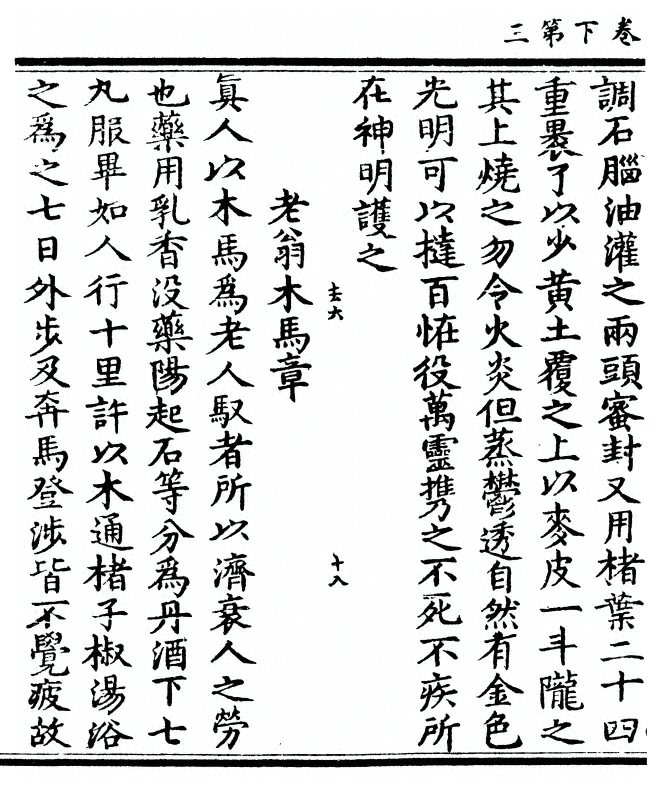 卷下第三
調石腦油灌之兩頭蜜封又用楮葉二十四
重褁了以少黃土覆之上以麥皮一斗隴之
其上燒之勿令火炎但蒸鬱透自然有金色
光明可以撻百恠役萬靈携之不死不疾所
在神明護之
士六
十八
老翁木馬章
眞人以木馬爲老人馭者所以濟衰人之勞
也藥用乳香没藥陽起石等分爲丹酒下七
丸服畢如人行十里許以木通楮子椒湯浴
之爲之七日外步及奔馬登涉皆不覺疲故